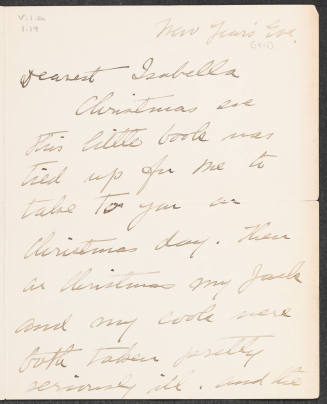 V.1.20
1.19
New Year's Eve.
Dearest Isabella
Christmas eve
this little book was
tied up for me to
take to you on
Christmas day. Then
at Christmas my Jack
and my cook were
both taken pretty
seriously ill. and the